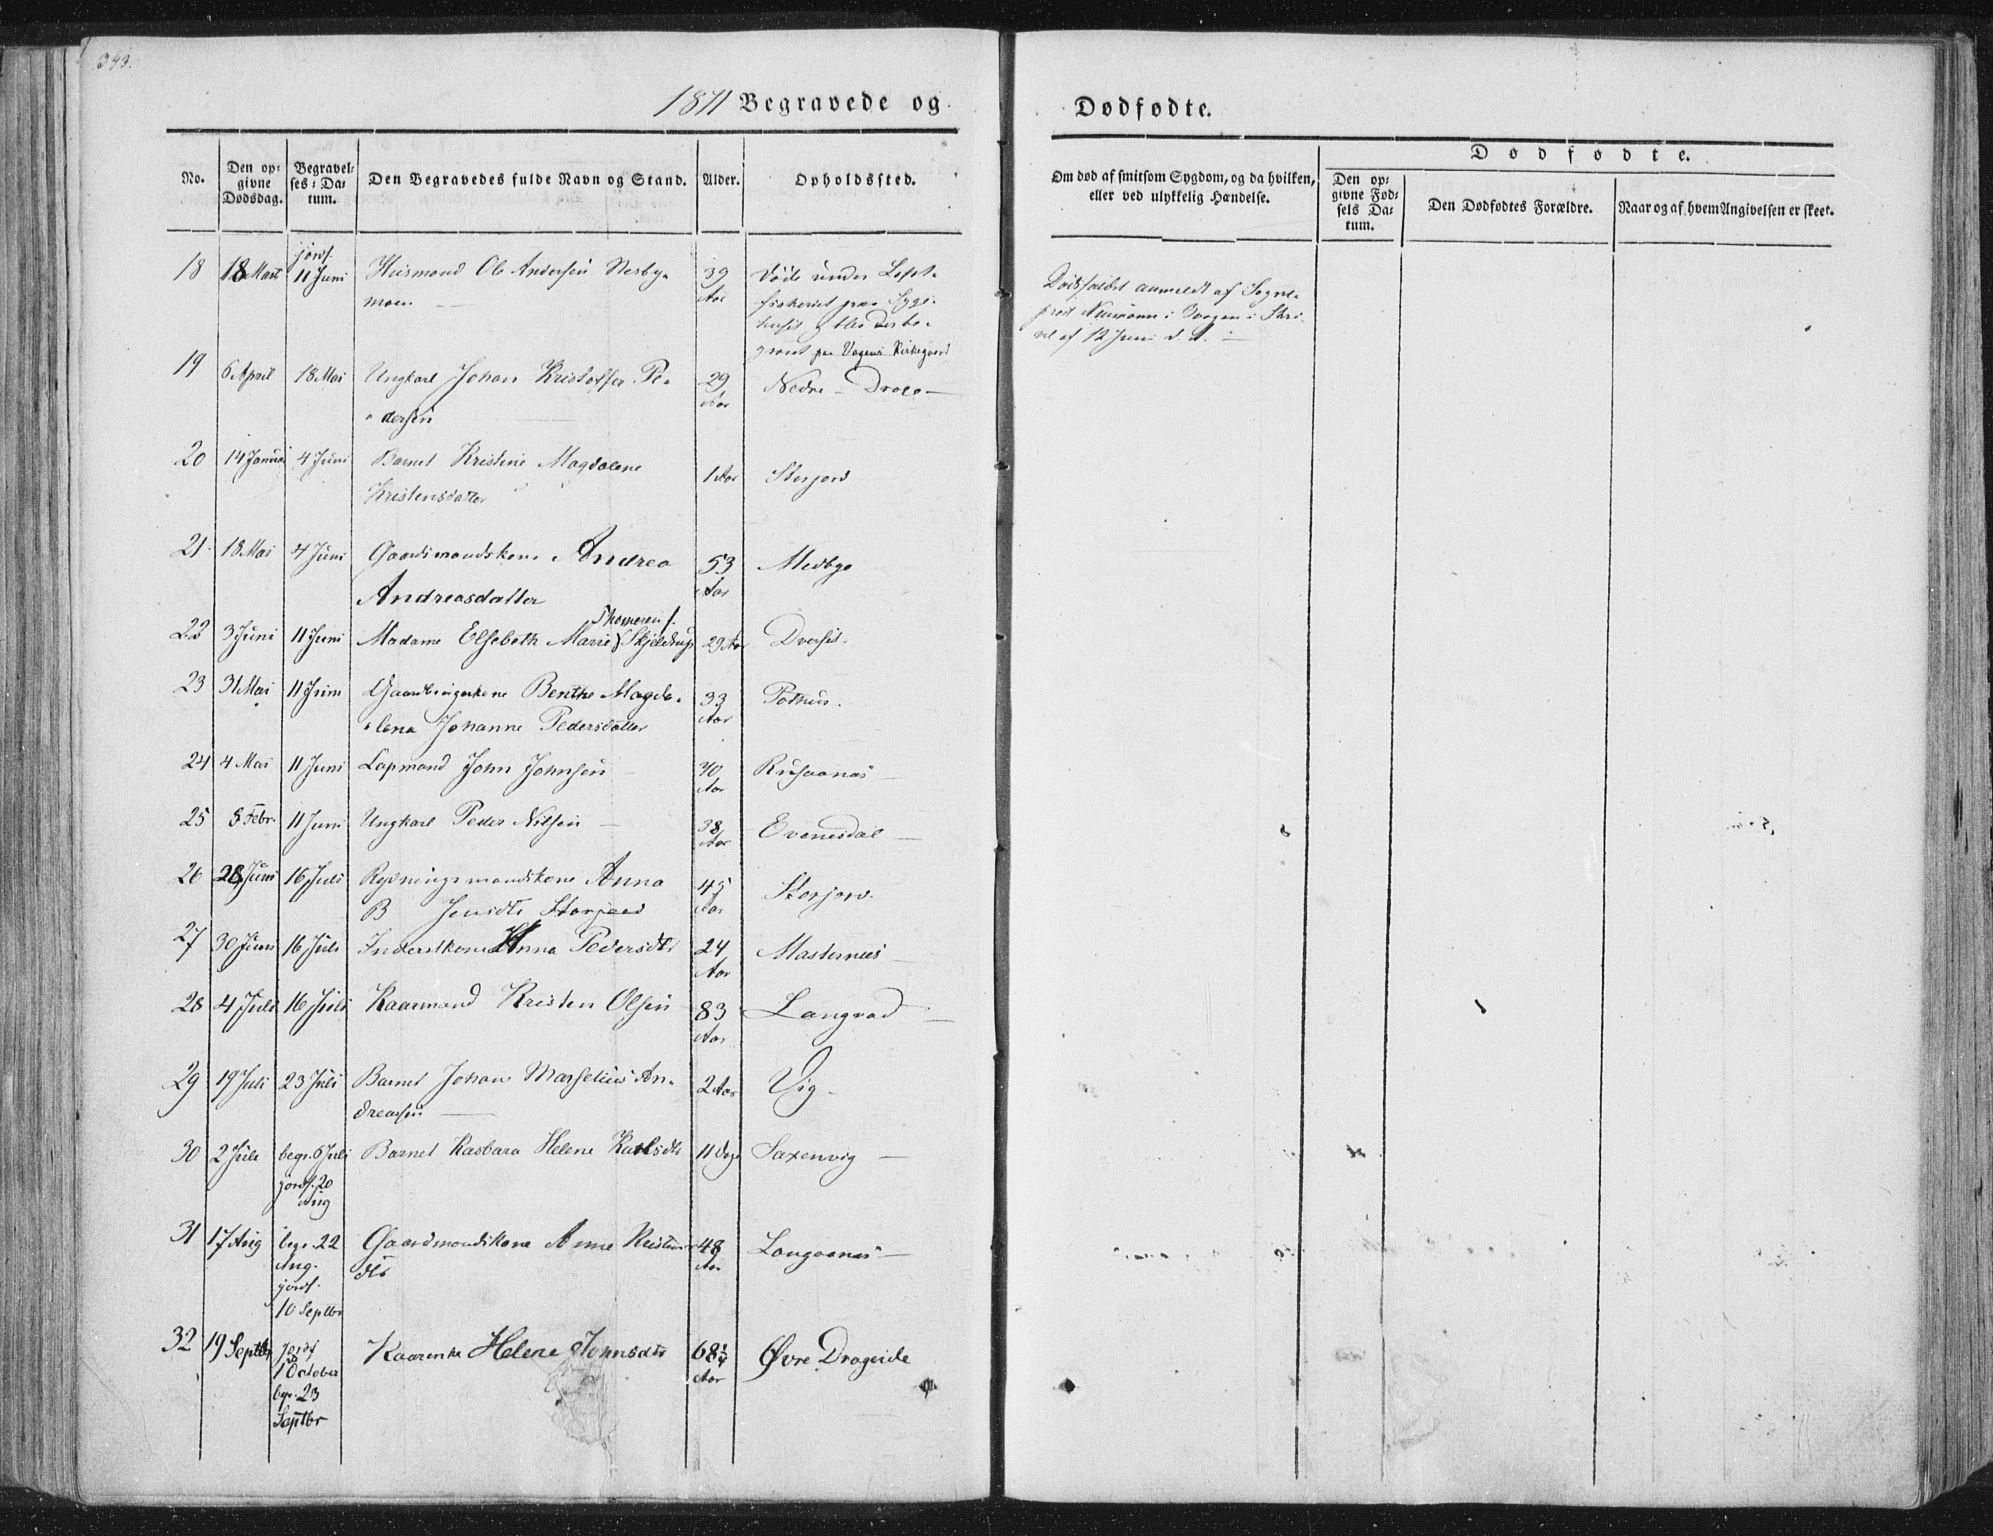 343.
1871 Begravede og
Dødfødte.
No.
Den op-
givne
Dødsdag.
Begravel-
ses-Da-
tum.
Den Begravedes fulde Navn og Stand.
Alder.
Opholdssted.
Om død af smitsom Sygdom, og da hvilken,
eller ved ulykkelig Hændelse.
Dødfødte.
Den op-
givne Fød-
sels Da-
tum.
Den Dødfødtes Forældre.
Naar og af hvem Angivelsen er skeet.
18 18 Mart jordf. 11 Juni Huusmand Ole Andersen Nesby-
moen 39 Aar
Døde under Lofot-
fiskeriet paa Syge-
huset og blev der be-
gravet paa Vagens Kirkegaard
Dødsfaldet anmeldt af Sogne-
prest Neumann i Vaagen i Skri-
vel af 12 Juni d. A.
19 6 April 18 Mai Ungkarl Johan Kristoffer Pe-
dersen 29 Aar Nedre
20 14 Januar 4 Juni Barnet Kristine Magdalene
Kristensdatter 1 Aar Storjord
21 18 Mai 4 Juni Gaardmandskone Andrea
Andreasdatter 53 Aar Medbye
22 3 Juni 11 Juni Madame Elsebeth Marie Thomesen f. Skjeldrup 29 Aar Dverset
23 31 Mai 11 Juni Gaardbrugerkone Benthe Magda-
lena Johanne Pedersdatter 33 Aar Pothus.
24 4 Mai 11 Juni Lapmand John Johnsen 70 Aar Rusaanes
25 8 Febr. 11 Juni Ungkarl Peder Nilsen 38 Aar Evenesdal
26 28 Juni 16 Juli Rydningsmandskone Anna
B Jensdtr Storjord 45 Aar Storjord.
27 30 Juni 16 Juli Inderstkone Anna Pedersdtr 24 Aar Masternes
28 4 Juli 16 Juli Kaarmand Kristen Olsen 83 Aar Langvad
29 19 Juli 23 Juli Barnet Johan Marselius An-
dreassen 2 Aar Vig.
30 2 Juli begr. 6 Juli
jordf. 20
Aug
Barnet Barbara Helene Karlsdtr 11 Dage Saxenvig
31 17 Aug begr. 22
Aug.
jordf.
10 Septbr
Gaardmandskone Anne Kristens-
dtr 48 Aar Langaanes
32 19 Septbr Jordf
1 October
begr. 23
Septbr
Kaarenke Helene Johnsdtr 68 3/4 Aar Øvre Drageide